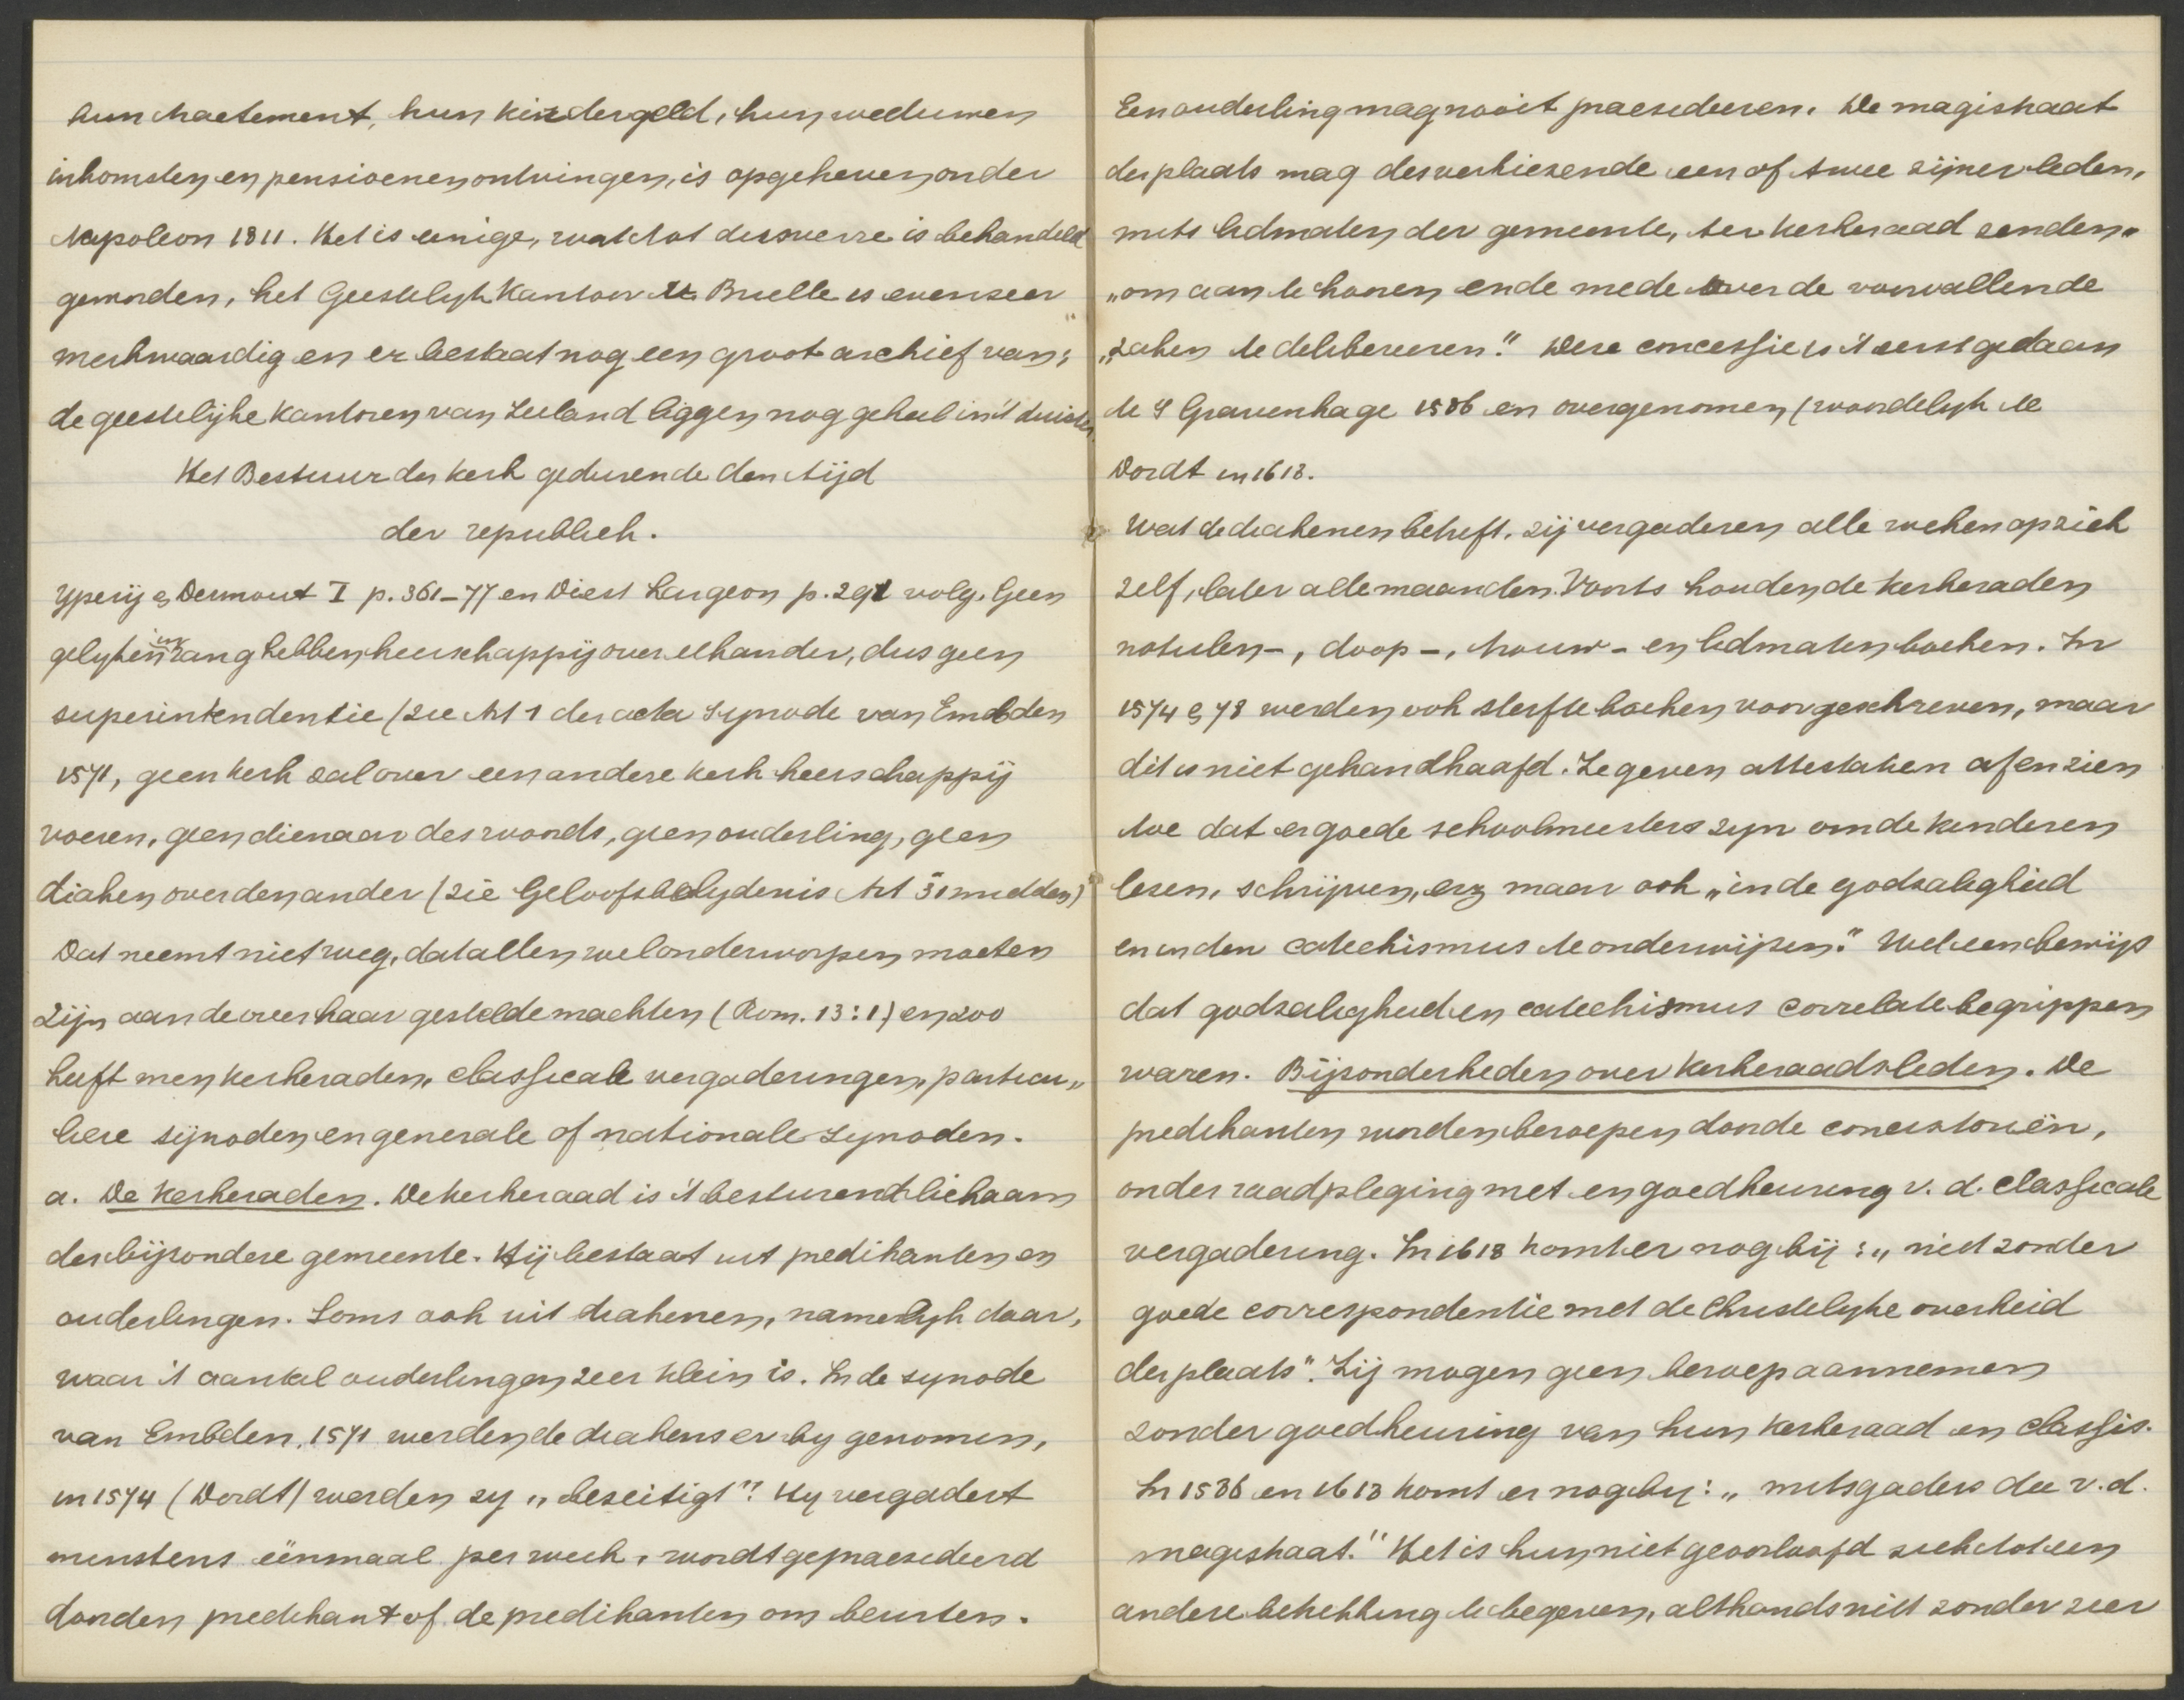 hun tractement, hun kindergeld, hun weduwen
inkomsten en pensioenen ontvingen, is opgeheven onder
Napoleon 1811. Het is eenige, wat tot dusverre is behandeld
geworden, het Geestelyk Kantoor te Brielle is evenzeer
merkwaardig en er bestaat nog een groot archief van;
de geestelijke kantoren van Zeeland liggen nog geheel in 't duister.
Het Bestuur der kerk gedurende den tijd
der republiek.
Ypeij & Dermout I p. 361-77 en Diest Lorgeon p. 291 volg. Geen
gelyken in rang hebben heerschappij over elkander, dus geen
superintendentie (zie Art 1 der acta Synode van Embden
1571, geen kerk zal over een andere kerk heerschappij
voeren, geen dienaar des woords, geen ouderling, geen
diaken over den ander (zie Geloofsbelydenis Art 31 midden)
Dat neemt niet weg, dat allen wel onderworpen moeten
zijn aan de over haar gestelde machten (Rom. 13:1) en zoo
heeft men kerkeraden, classicale vergaderingen, particu„
liere synoden en generale of nationale synoden.
a. De Kerkeraden. De kerkeraad is 't besturend lichaam
der bijzondere gemeente. Hij bestaat uit predikanten en
ouderlingen. Soms ook uit diakenen, namelyk daar,
waar 't aantal ouderlingen zeer klein is. In de synode
van Embden, 1571 werden de diakens er by genomen,
in 1574 (Dordt) werden zy „beseitigt"? Hy vergadert
minstens éénmaal per week, wordt gepraesideerd
door den predikant of de predikanten om beurten.
Een ouderling mag nooit praesideeren. De magistraat
der plaats mag desverkiezende een of twee zijner leden,
mits lidmaten der gemeente, ter kerkeraad zenden„
„om aan te hooren ende mede over de voorvallende
„zaken te delibereeren." Deze concessie is 't eerst gedaan
te 's Gravenhage 1586 en overgenomen (woordelyk te
Dordt in 1618.
Wat de diakenen betreft, zij vergaderen alle weken op zich
zelf, later alle maanden. Voorts houden de kerkeraden
notulen-, doop-, trouw- en lidmatenboeken. In
1574 & 78 werden ook sterfteboeken voorgeschreven, maar
dit is niet gehandhaafd. Ze geven attestatien af en zien
toe dat er goede schoolmeesters zyn om de kinderen
lezen, schrijven, enz maar ook „in de godzaligheid
en in den catechismus te onderwijzen." Wel een bewijs
dat godzaligheid en catechismus correlate begrippen
waren. Bijzonderheden over kerkeraadsleden. De
predikanten worden beroepen door de consistoriën,
onder raadpleging met en goedkeuring v. d. classicale
vergadering. In 1618 komt er nog bij: „niet zonder
goede correspondentie met de Christelyke overheid
der plaats". Zij mogen geen beroep aannemen
zonder goedkeuring van hun kerkeraad en classis.
In 1586 en 1618 komt er nog by: „mitsgaders die v. d.
magistraat." Het is hun niet geoorloofd zich tot een
andere betrekking te begeven, althands niet zonder zeer